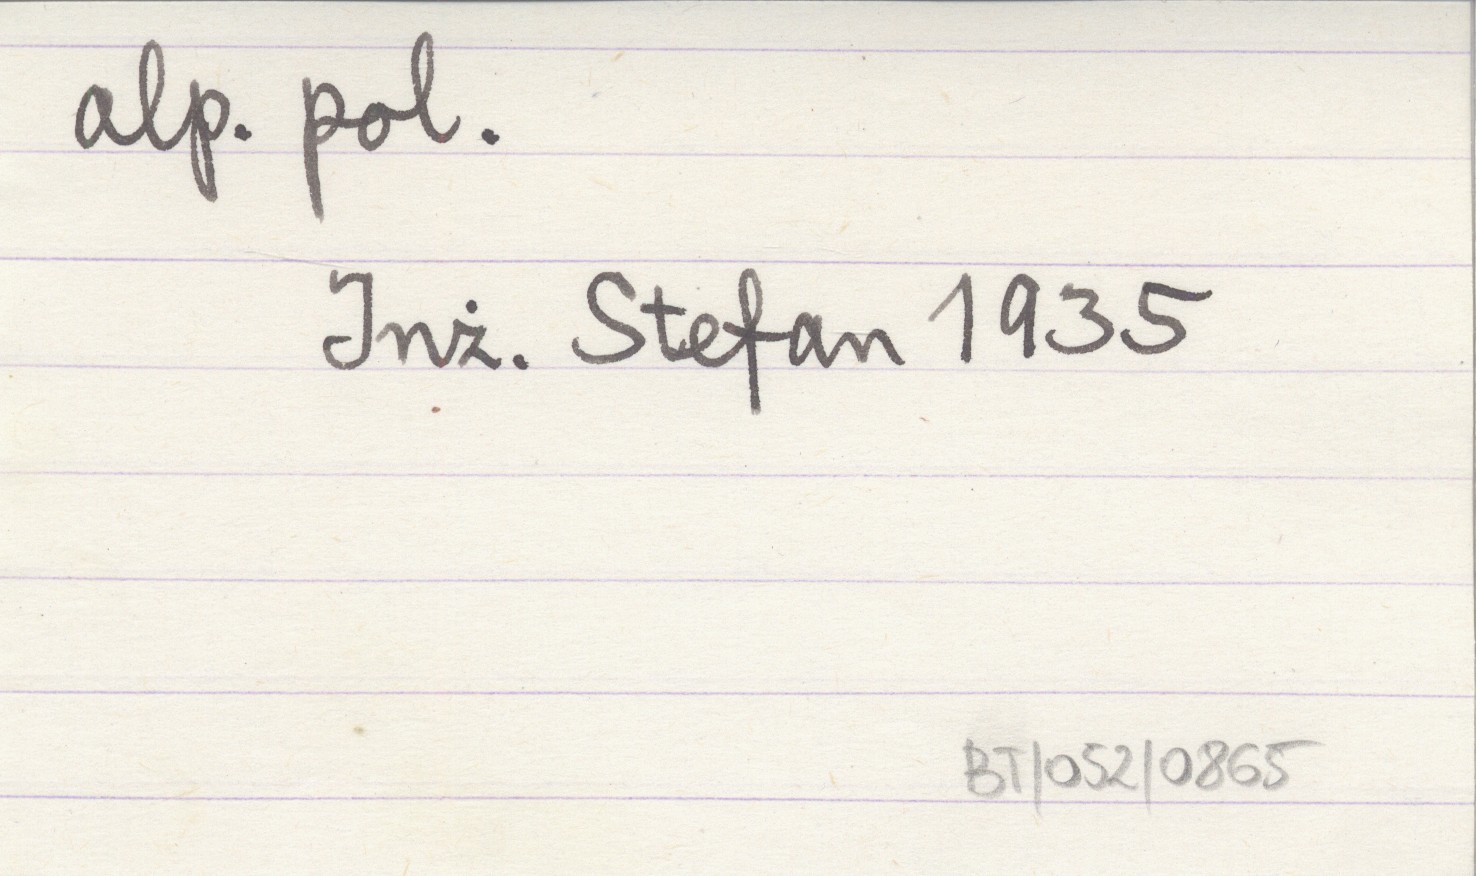 alp. pol.
Inż. Stefan 1935
BT/052/0865